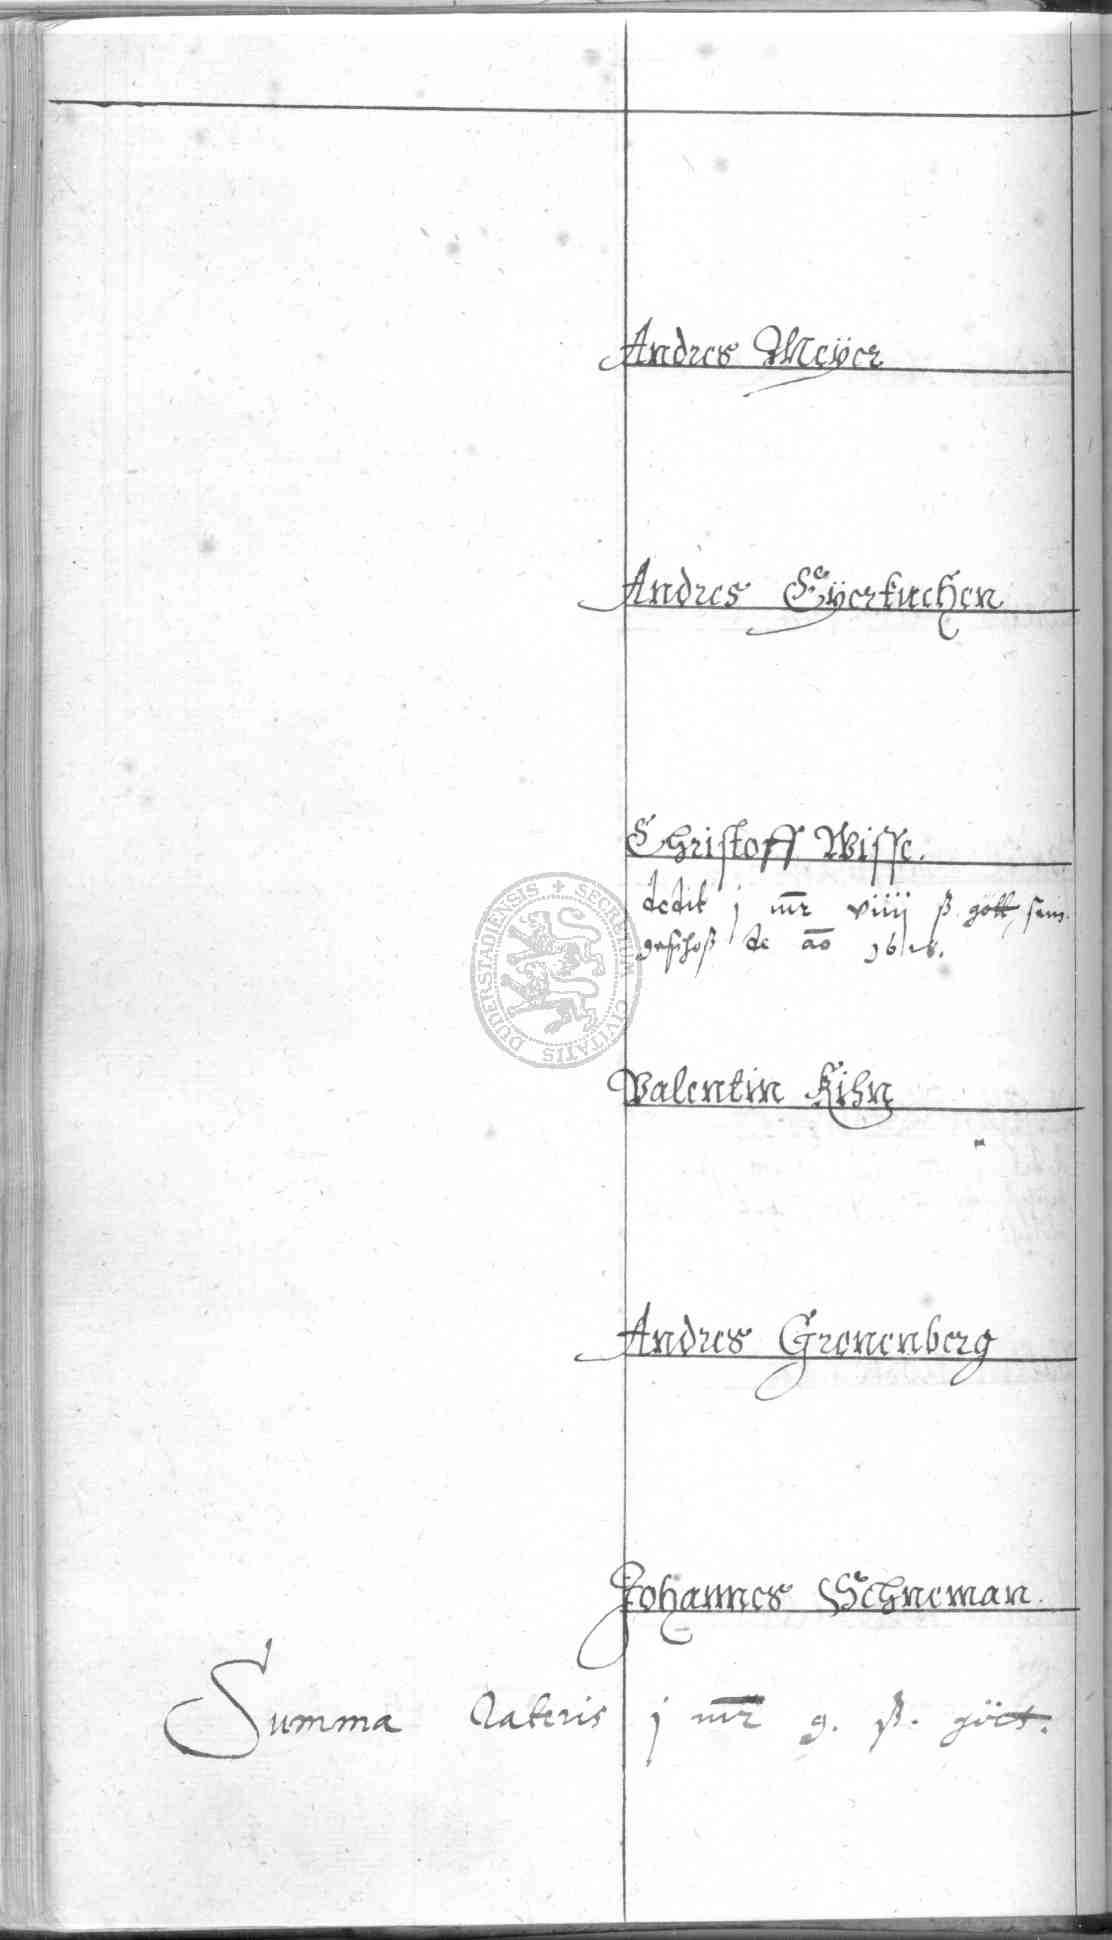 Andres Meÿer
Andres Eÿerkuchen
Christoff Wisse.
dedit j mr viiii ß gött sein
geschoß de ao
SECRETUM CIVITATIS DUDERSTADIENSIS
Valentin Kihn
Andres Gronenberg
Johannes Schneman.
Summa Lateris j mr 9. ß. gött.